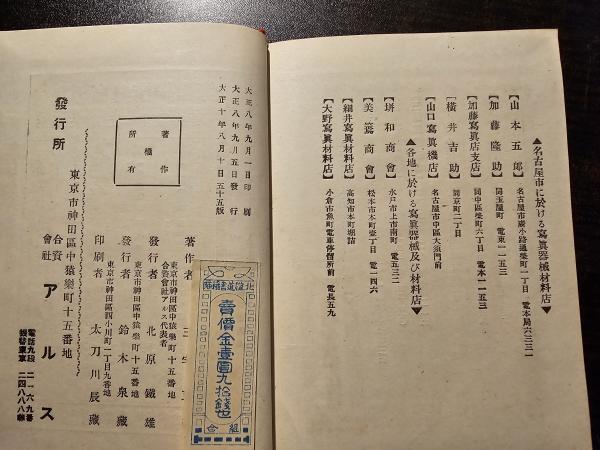 ▲名古屋市に於ける寫眞器械材料店▼
【山本五郎】名古屋市廣小路通榮町一丁目 電本局六三三一
【加藤隆助】同玉屋町 電東一一五三
【加藤寫眞店支店】同中區榮町六丁目 電本一一五三
【橫井吉助】同京町二丁目
【山口寫眞機店】名古屋市中區大須門前
▲各地に於ける寫眞器械及び材料店▼
【堺和商會】水戶市上市南町 電五三二
【美篶商會】松本市本町壹丁目 電一四六
【細井寫眞材料店】高知市本町堀詰
【大野寫眞材料店】小倉市魚町電車停留所前 電長五九
大正八年九月一日印刷
大正八年九月五日發行
大正十年八月十日五十五版
著作
權
所有
著作者
東京市神田區中猿樂町十五番地
合資會社アルス代表者
發行者 北原鐵雄
東京市神田區中猿樂町十五番地
發行者 鈴木泉藏
東京市神田區四小川町一丁目九番地
印刷者 太刀川辰藏
賣價金壹圓九拾錢也
組合
發行所
東京市神田區中猿樂町十五番地
合資會社 アルス
電話九段 二一六九番
振替東京 二四八八八番